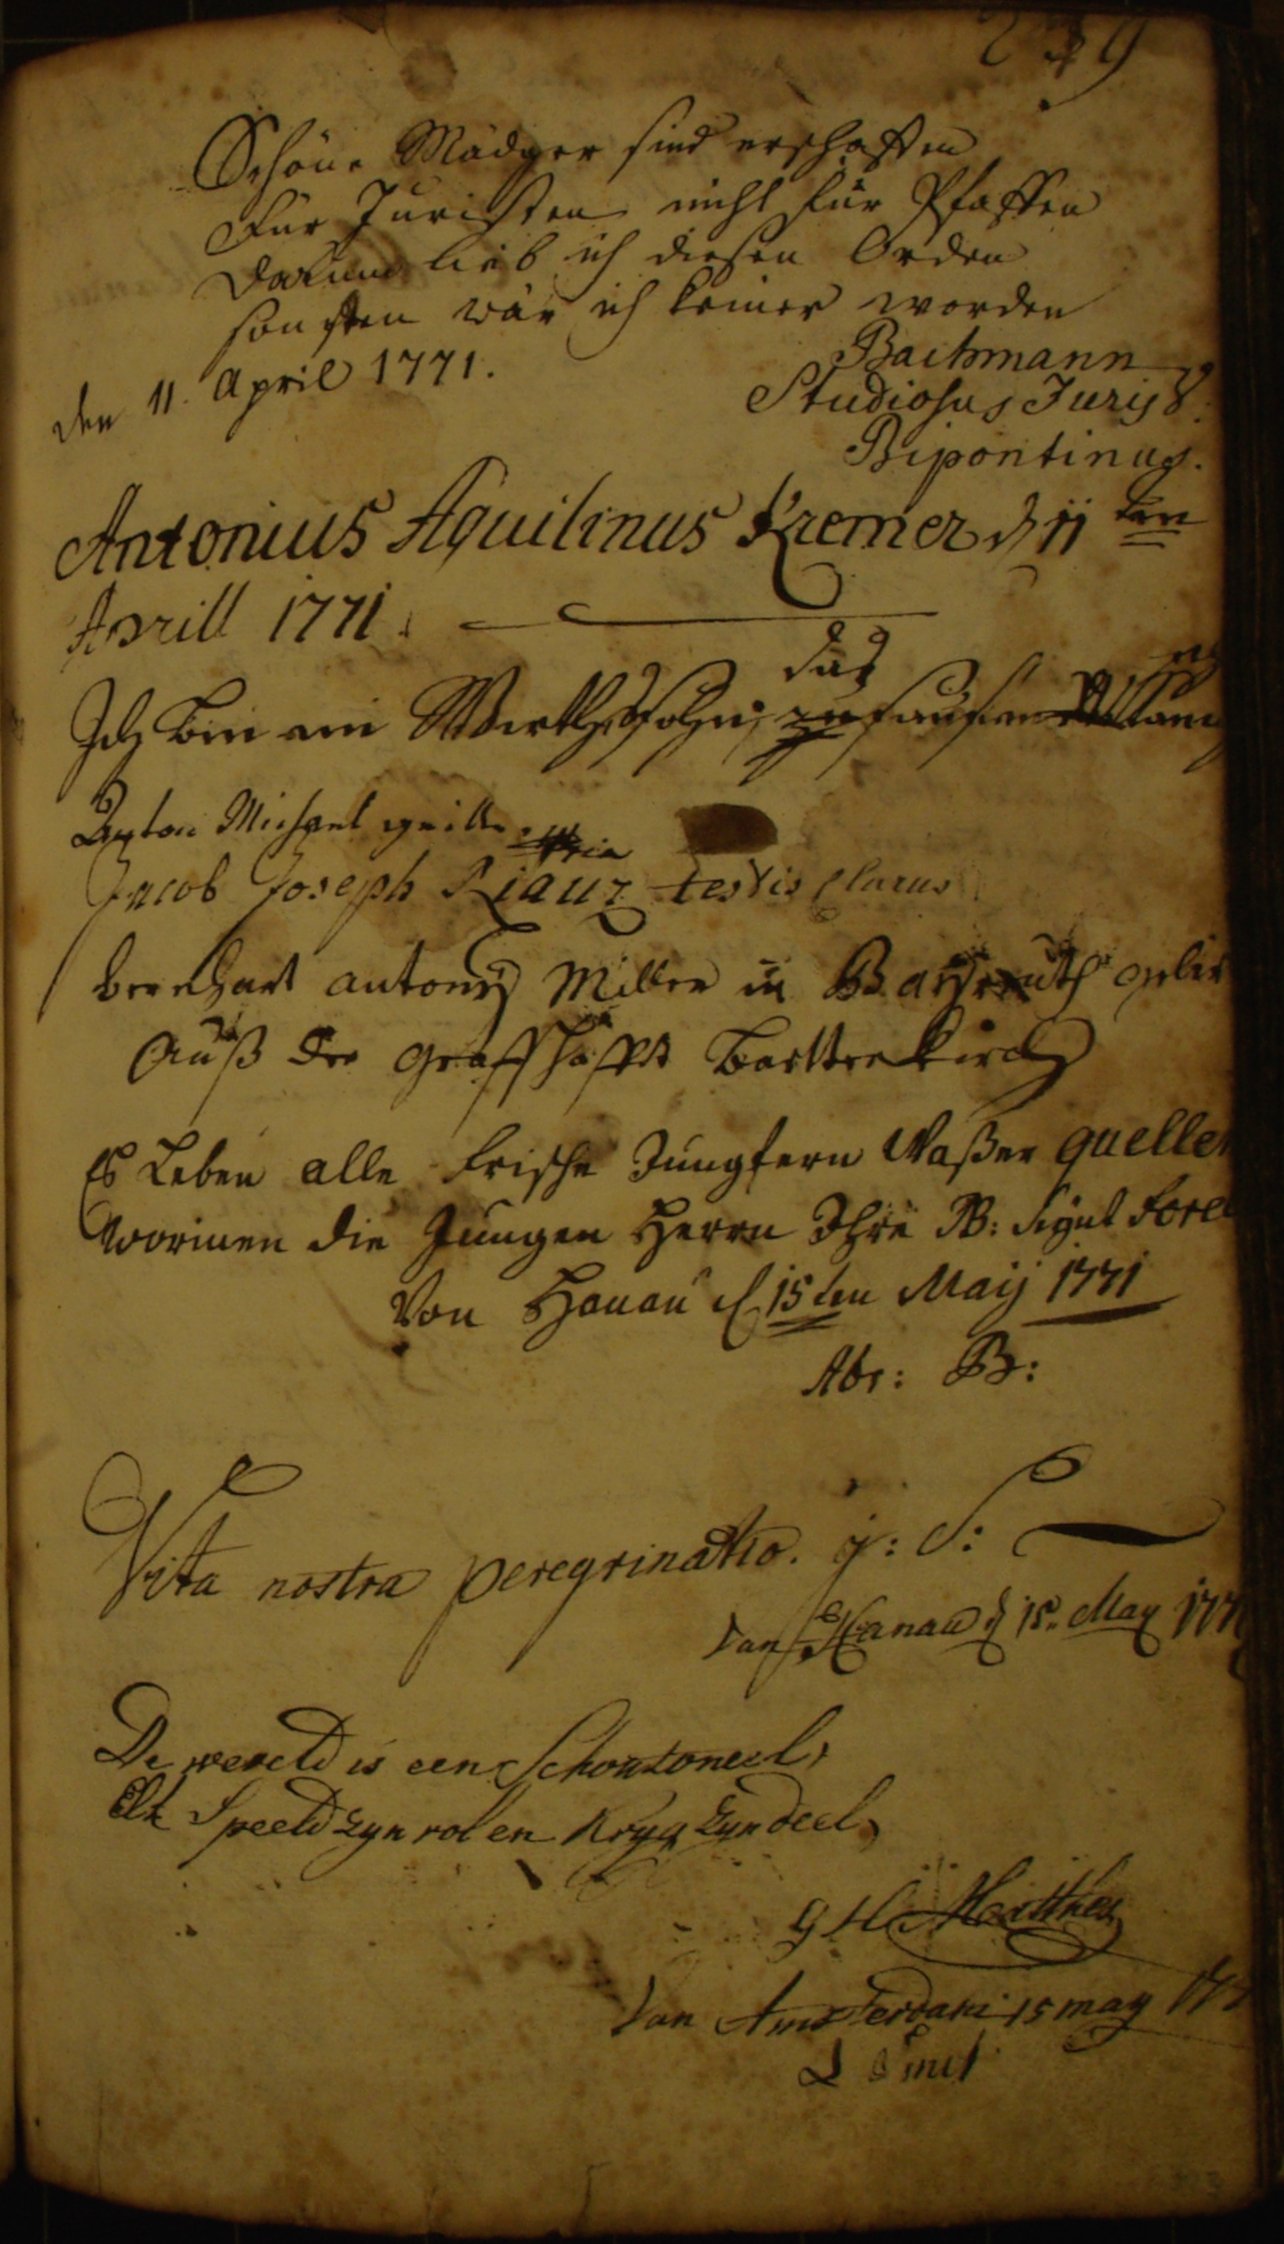 239
Schöne Mädger sind erschaffen
Für Juristen nicht für Pfaffen
Darum lieb ich diesen Orden
sonsten wär ich keiner worden
den 11. April 1771.
Bachmann
Studiosus Juris
Bipontinus.
Antonius Aquilinus Kremer d 11 ten
Aprill 1771.
das
Ich bin ein Wirthssohn, zu saufen
Anton Michael
Jacob Joseph testis clarus
bernhart antony Miller in
Auß der graffschafft
Es Leben alle frische Jungfern Waßer quellen
worinen die Jungen Herrn Ihre
Von Hanau d 15ten Maij 1771
Abr: B:
Vita nostra peregrinatio. j: S:
van Hanau d 15. May
De wereld is een Schoutoneel,
Elk Speeld zyn rol en Krygt zyn deel,
G H
Van Amsterdam 15 may
L Smit